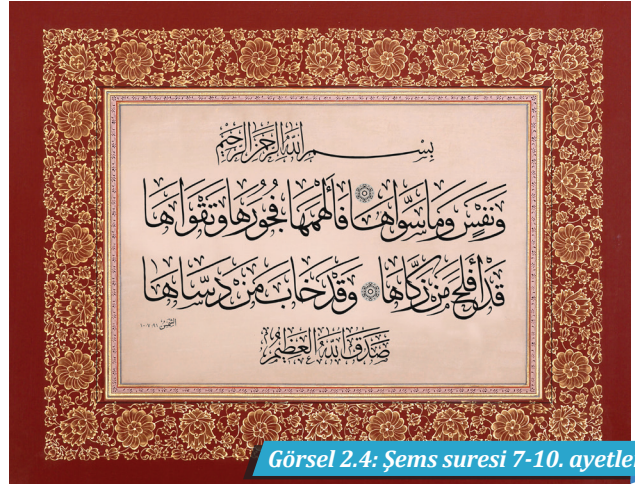 بسم الله الرحمن الرحيم
وَنَفْسٍ وَمَا سَوَّاهَا فَأَلْهَمَهَا فُجُورَهَا وَتَقْوَاهَا
قَدْ أَفْلَحَ مَنْ زَكَّاهَا وَقَدْ خَابَ مَنْ دَسَّاهَا
صَدَقَ اللهُ الْعَظِيمُ
الشمس ٩١ ٧-١٠
Görsel 2.4: Şems suresi 7-10. ayetle